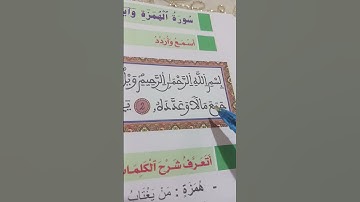 سُورَةُ الْهُمَزَةِ
أَسْمَعُ وَأُرَدِّدُ
بِسْمِ اللَّهِ الرَّحْمَٰنِ الرَّحِيمِ وَيْلٌ
جَمَعَ مَالًا وَعَدَّدَهُ 2
أَتَعَرَّفُ شَرْحَ الْكَلِمَاتِ
- هُمَزَةٍ : مَنْ يَغْتَابُ